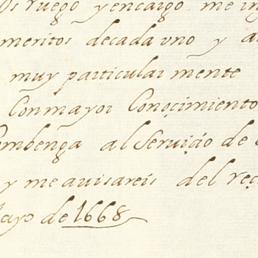 Os ruego y encargo me in
meritos decada vno y a
muy particular mente
Conmayor Conoçimiento
Combenga al Seruiçio de
y me auisareis del reç
de 1668